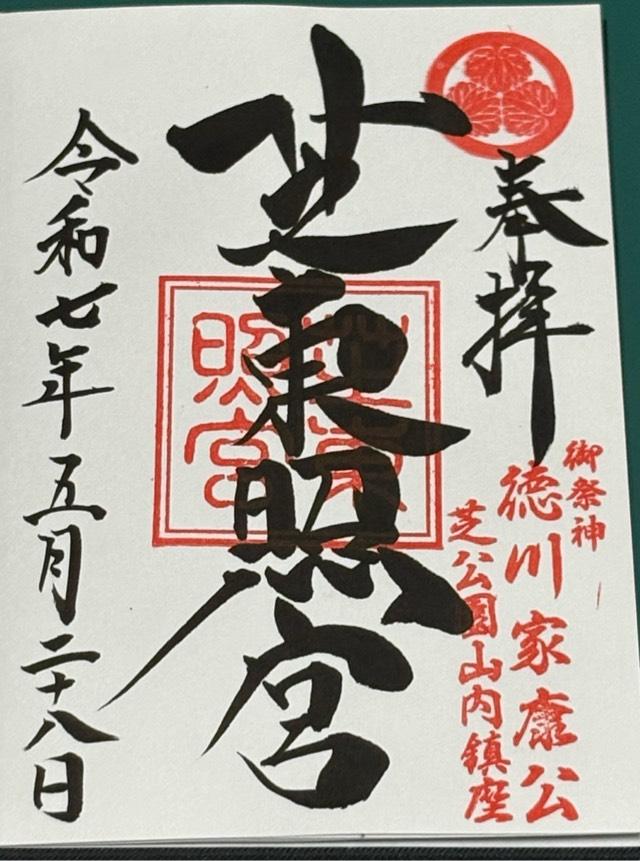 奉拝
御祭神
徳川家康公
芝公園山内鎮座
芝東照宮
芝東照宮
令和七年五月二十八日